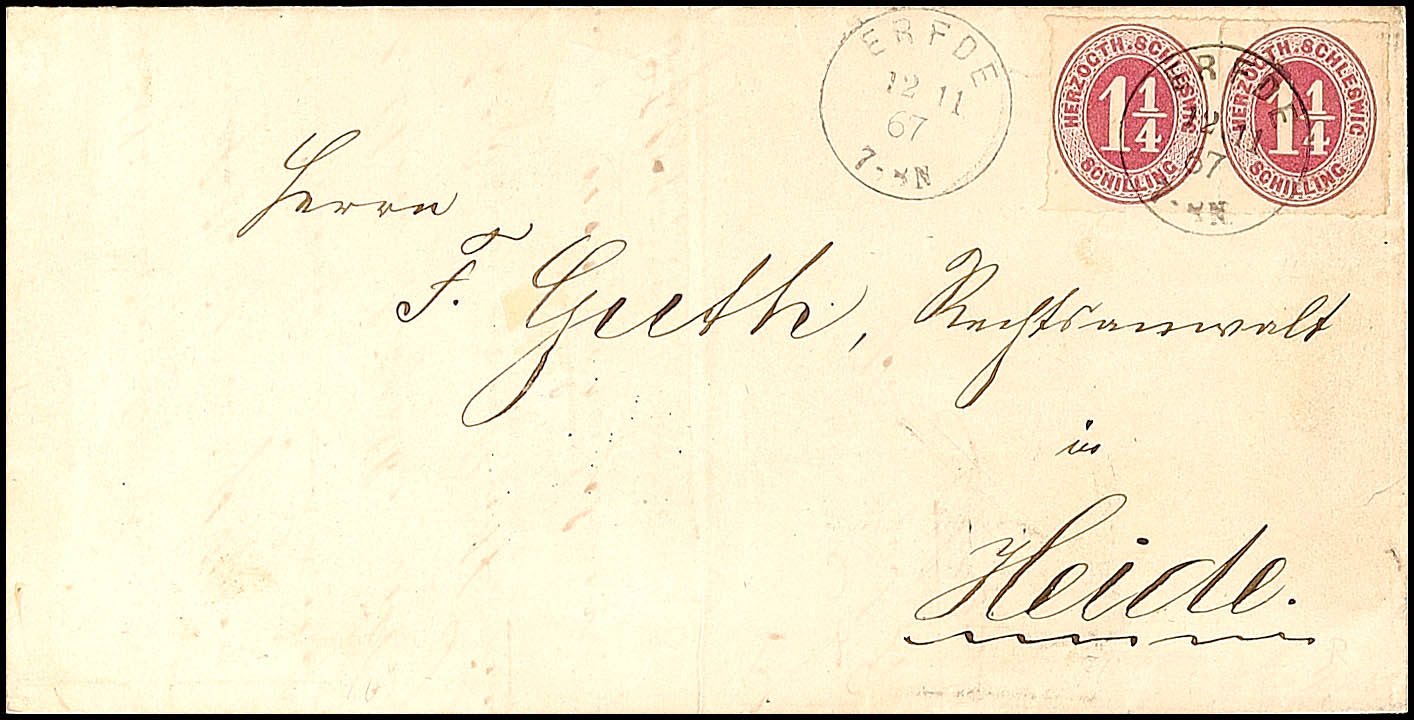 ERFDE
12 11
67
7-8N
HERZOGTH. SCHLESWIG
1 1/4
SCHILLING
HERZOGTH. SCHLESWIG
1 1/4
SCHILLING
ERFDE
12 11
67
7-8N
Herrn
F. Gueth, Rechtsanwalt
in
Heide.